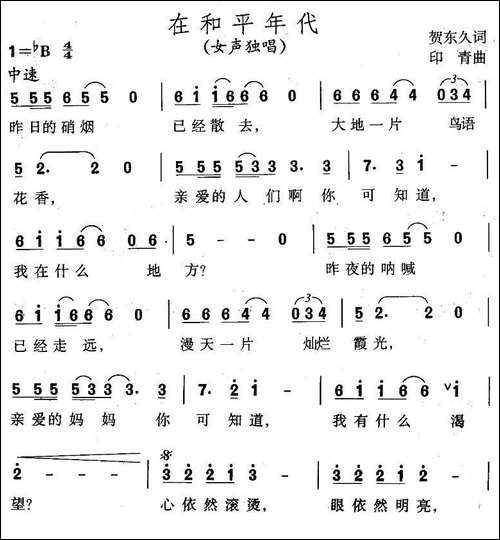 在和平年代
(女声独唱)
1=♭B 4/4
贺东久词
中速
印青曲
5 5 5 6 5 5 0 | 6 i i 6 6 6 0 | 6 6 6 6 4 0 3 4 |
昨日的硝烟 已经散去, 大地一片 鸟语
5 2· 2 0 | 5 5 5 5 3 3 3· 3 | 7· 3 i - |
花香, 亲爱的人们啊你 可知道,
6 i i 6 6 0 6 | 5 - - 0 | 5 5 5 6 5 5 0 |
我在什么 地方? 昨夜的呐喊
6 i i 6 6 6 0 | 6 6 6 6 4 0 3 4 | 5 2· 2 0 |
已经走远, 漫天一片 灿烂 霞光,
5 5 5 5 3 3 3· 3 | 7· 2 i - | 6 i i 6 6 i |
亲爱的妈妈 你 可知道, 我有什么 渴
2 - - - | 3 2 2 i 3 - | 3 2 2 i 2 - |
望? 心依然滚烫, 眼依然明亮,